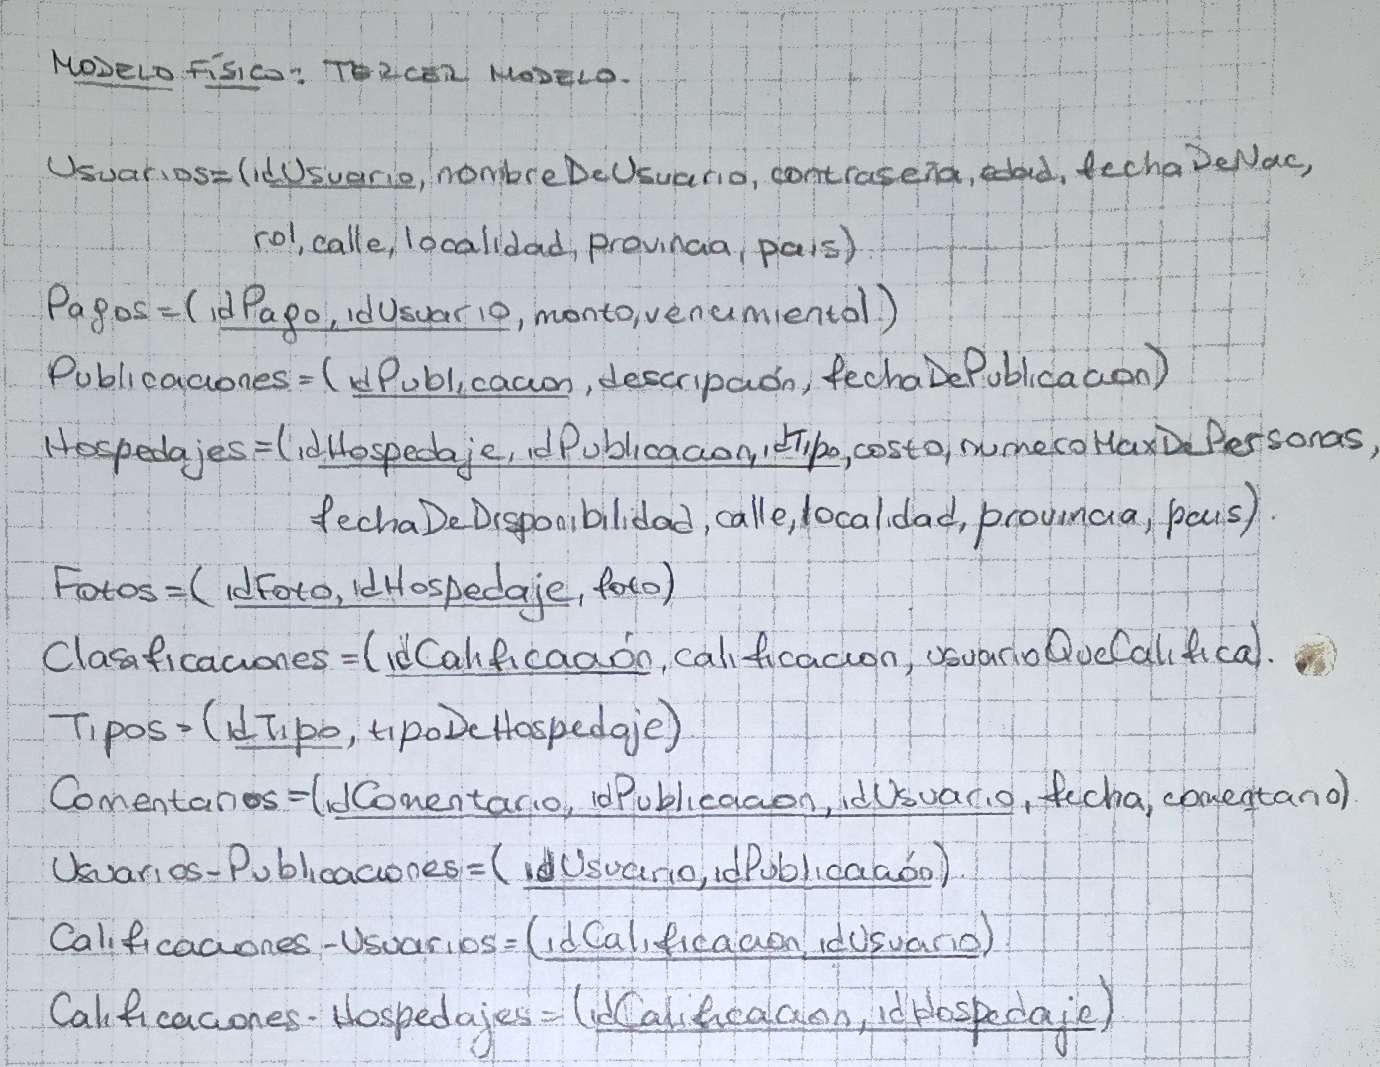 MODELO FÍSICO: TERCER MODELO.
Usuarios=(idUsuario, nombreDeUsuario, contraseña, edad, fechaDeNac,
rol, calle, localidad, provincia, pais)
Pagos=(idPago, idUsuario, monto, vencimiento1)
Publicaciones=(idPublicacion, descripción, fechaDePublicacion)
Hospedajes=(idHospedaje, idPublicacion, idTipo, costo, numeroMaxDePersonas,
fechaDeDisponibilidad, calle, localidad, provincia, pais).
Fotos=(idFoto, idHospedaje, foto)
Clasificaciones=(idCalificación, calificacion, usuarioQueCalifica).
Tipos=(idTipo, tipoDeHospedaje)
Comentarios=(idComentario, idPublicacion, idUsuario, fecha, comentario).
Usuarios-Publicaciones=(idUsuario, idPublicación).
Calificaciones-Usuarios=(idCalificacion, idUsuario)
Calificaciones-Hospedajes=(idCalificacion, idHospedaje)